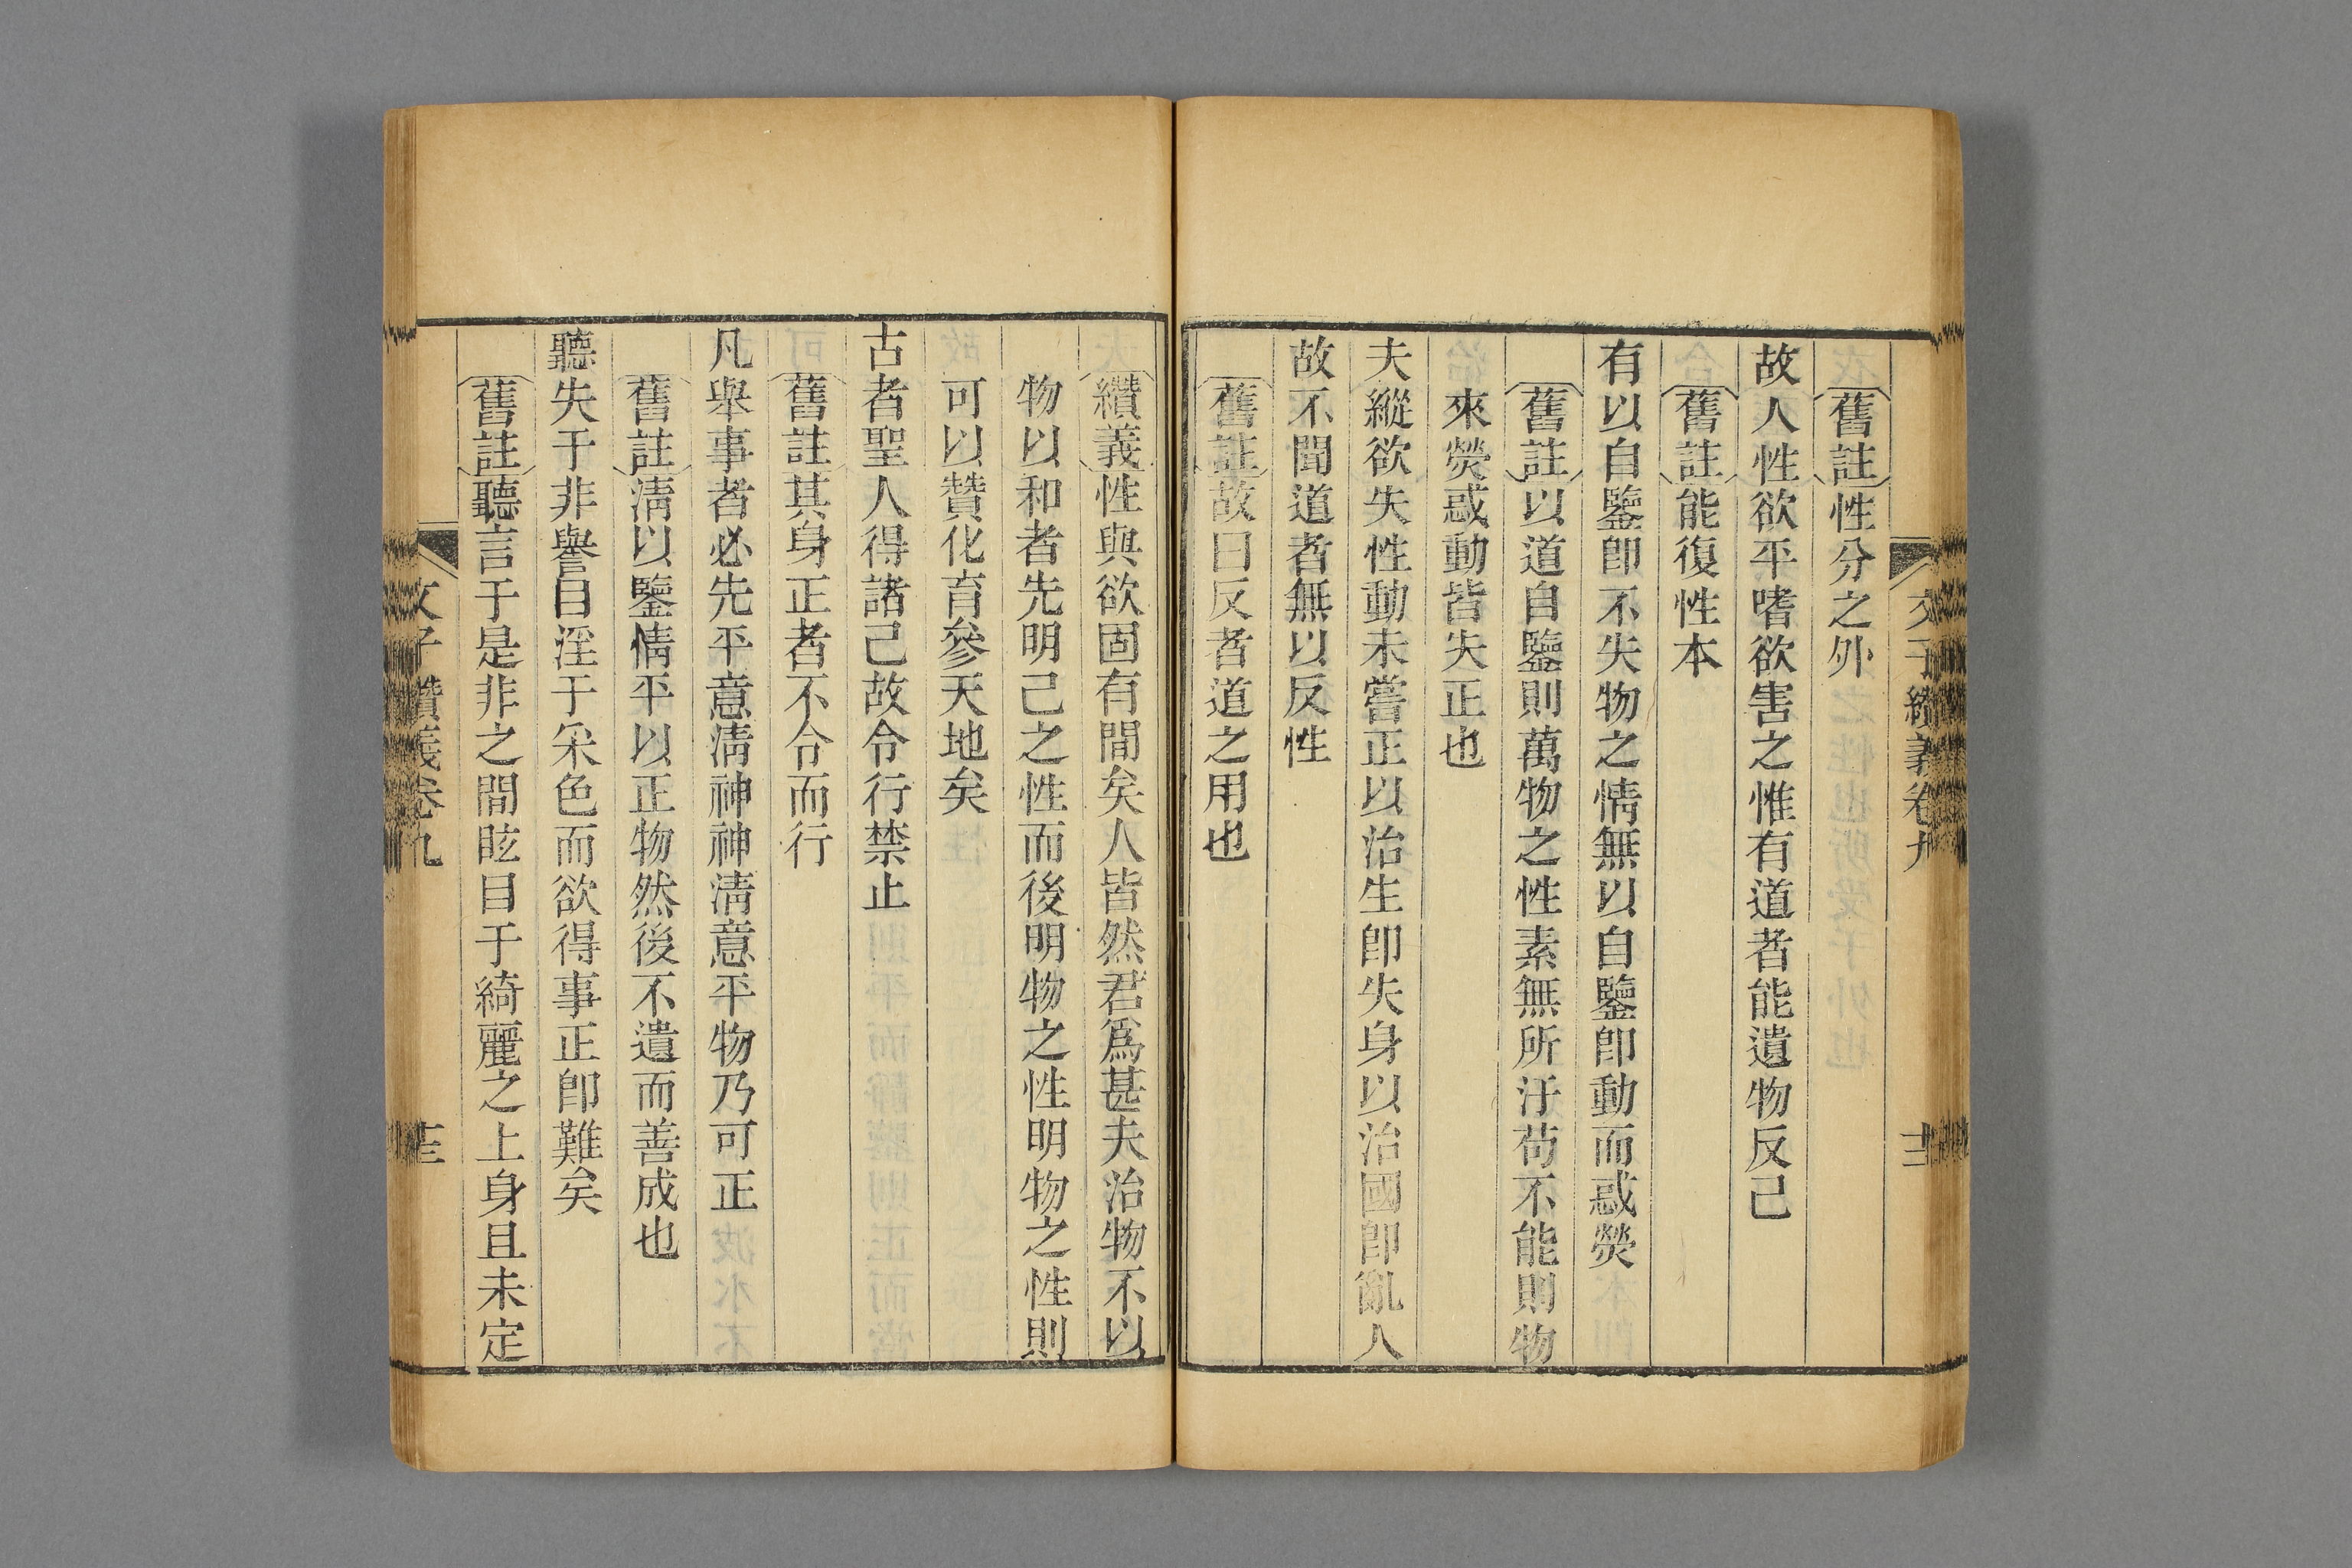 文子纘義卷九
舊註性分之外
故人性欲平嗜欲害之惟有道者能遺物反己
舊註能復性本
有以自鑒卽不失物之情無以自鑒卽動而惑熒
舊註以道自鑒則萬物之性素無所汙苟不能則物
來熒惑動皆失正也
夫縱欲失性動未嘗正以治生卽失身以治國卽亂人
故不聞道者無以反性
舊註故曰反者道之用也
纘義性與欲固有間矣人皆然君爲甚夫治物不以
物以和者先明己之性而後明物之性明物之性則
可以贊化育參天地矣
古者聖人得諸己故令行禁止
舊註其身正者不令而行
凡舉事者必先平意淸神神淸意平物乃可正
舊註淸以鑒情平以正物然後不遺而善成也
聽失于非譽目淫于采色而欲得事正卽難矣
舊註聽言于是非之間眩目于綺麗之上身且未定
文子纘義卷九